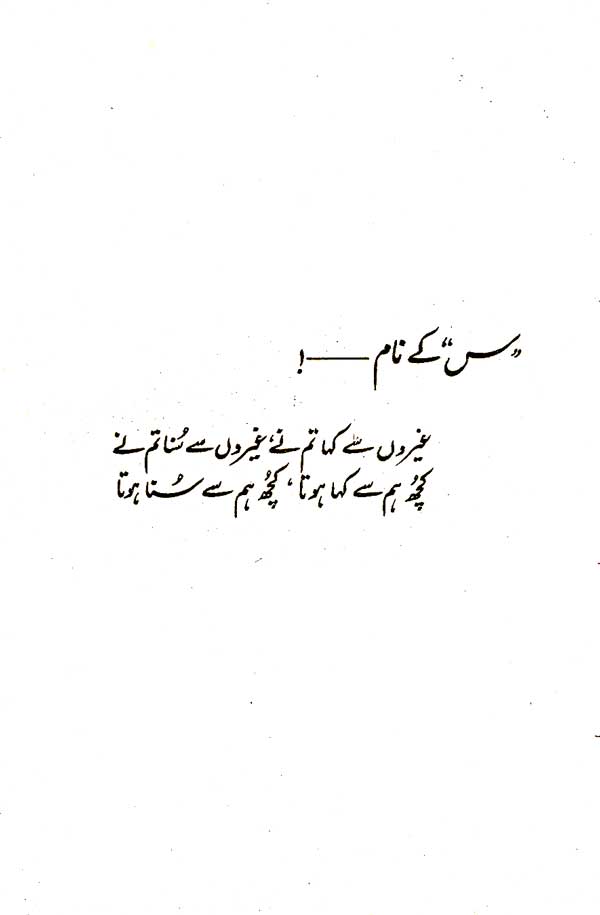 ”س“ کے نام ——— !
غیروں سے کہا تم نے، غیروں سے سُنا تم نے
کچھ ہم سے کہا ہوتا، کچھ ہم سے سُنا ہوتا